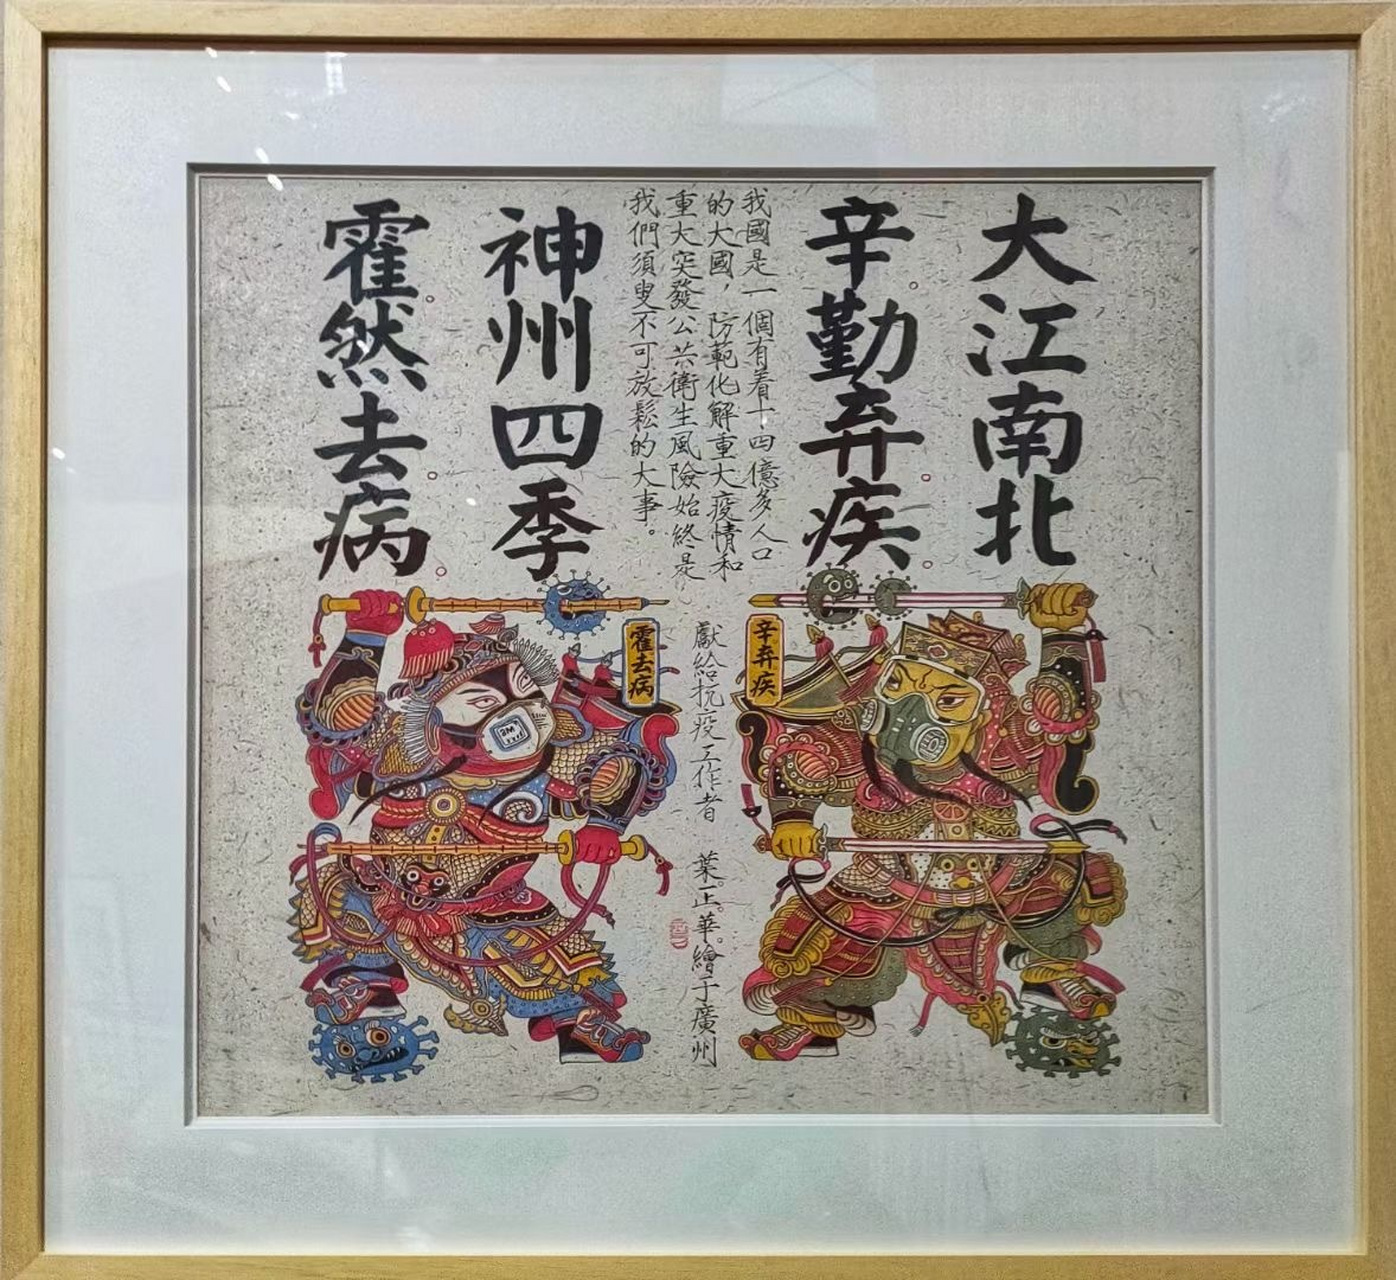 大江南北
辛勤弃疾
我國是一個有着十四億多人口
的大國，防範化解重大疫情和
重大突發公共衛生風險始終是
我們須臾不可放鬆的大事。
神州四季
霍然去病
辛弃疾
獻給抗疫工作者 葉正華繪于廣州
霍去病
3M